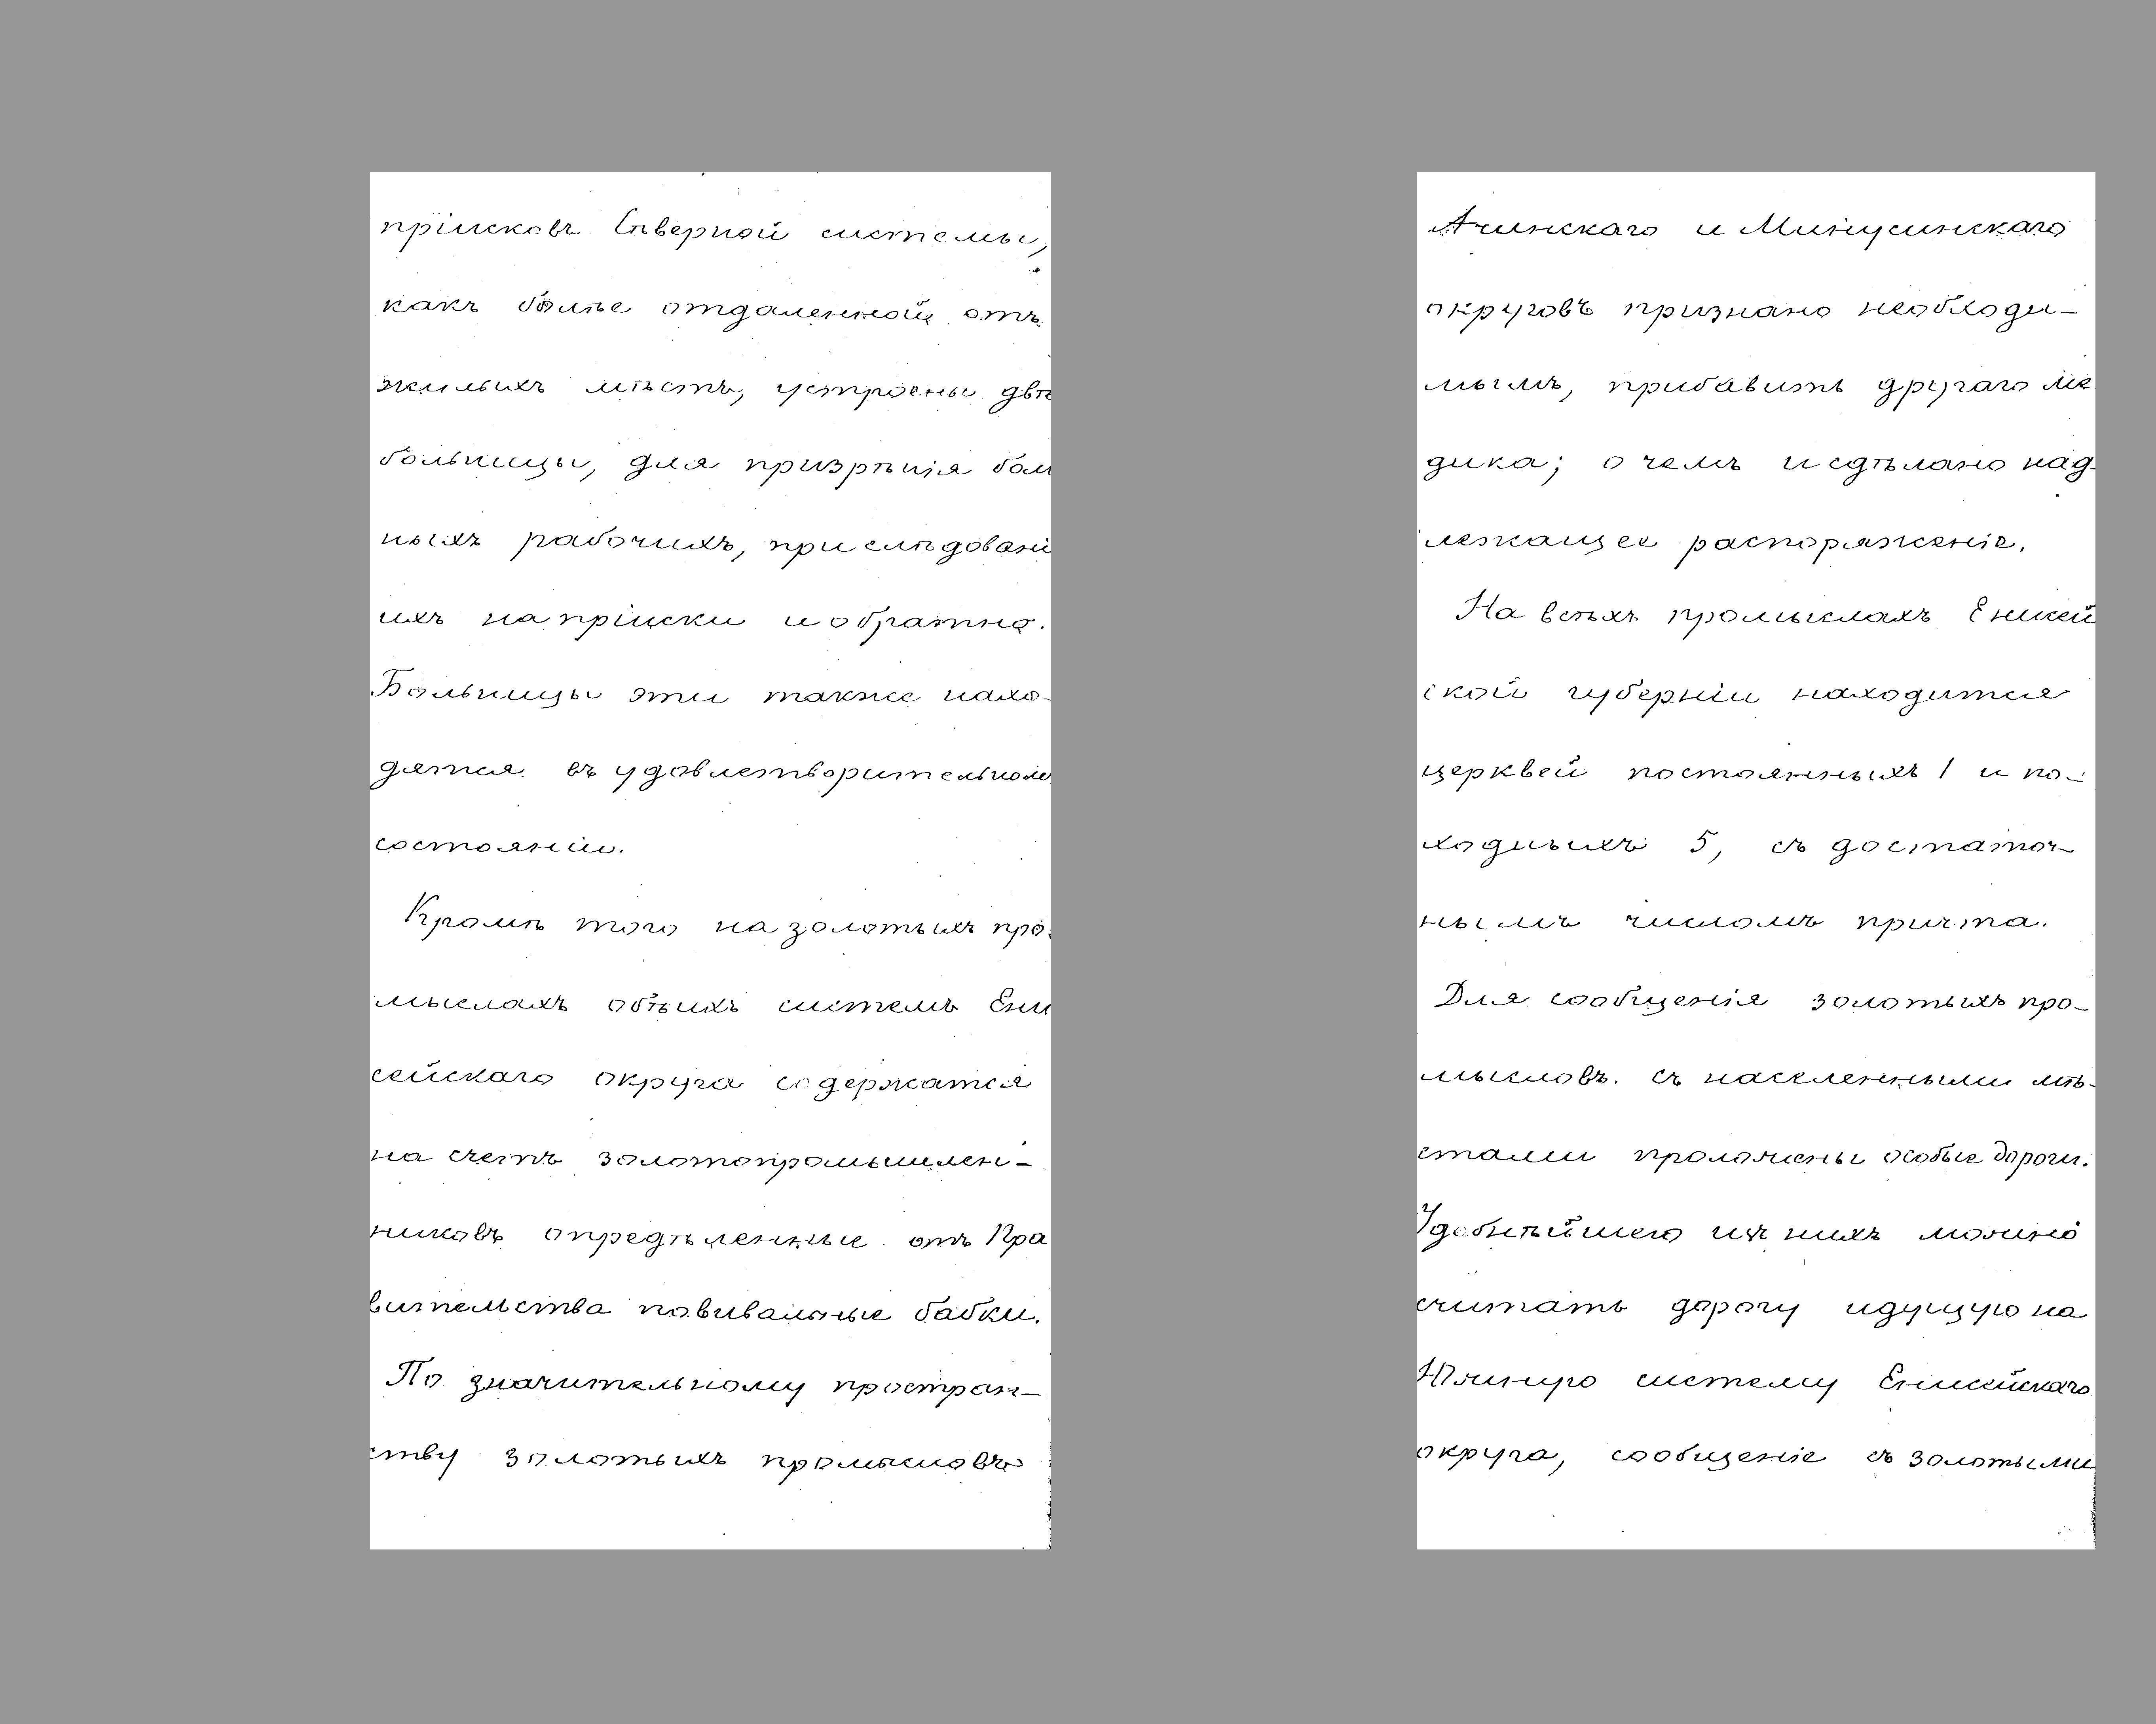 пріисковъ Сѣверной системы,
какъ болѣе отдаленной отъ
жилыхъ мѣстъ, устроены двѣ
больницы, для призрѣнія бол
ныхъ рабочихъ, при слѣдовані
ихъ на пріиски и обратно.
Больницы эти также нахо-
дятся въ удовлетворительном
состояніи.
Кромѣ того на золотыхъ про-
мыслахъ обѣихъ системъ Ени
сейскаго округа содержатся
на счетъ золотопромышлен-
никовъ опредѣленные отъ Пра
вительства повивальные бабки.
По значительному простран-
ству золотыхъ промысловъ
Ачинскаго и Минусинскаго
округовъ признано необходи-
мымъ, прибавить другаго ме
дика; о чемъ и сдѣлано над-
лежащее распоряженіе.
На всѣхъ промыслахъ Енисей
ской губерніи находится
церквей постоянныхъ 1 и по-
ходныхъ 5, съ достаточ-
нымъ числомъ причта.
Для сообщенія золотыхъ про-
мысловъ съ населенными мѣ-
стами проложены особые дороги.
Удобнѣйшею изъ нихъ можно
считать дорогу идущую на
Южную систему Енисейскаго
округа, сообщеніе съ золотыми